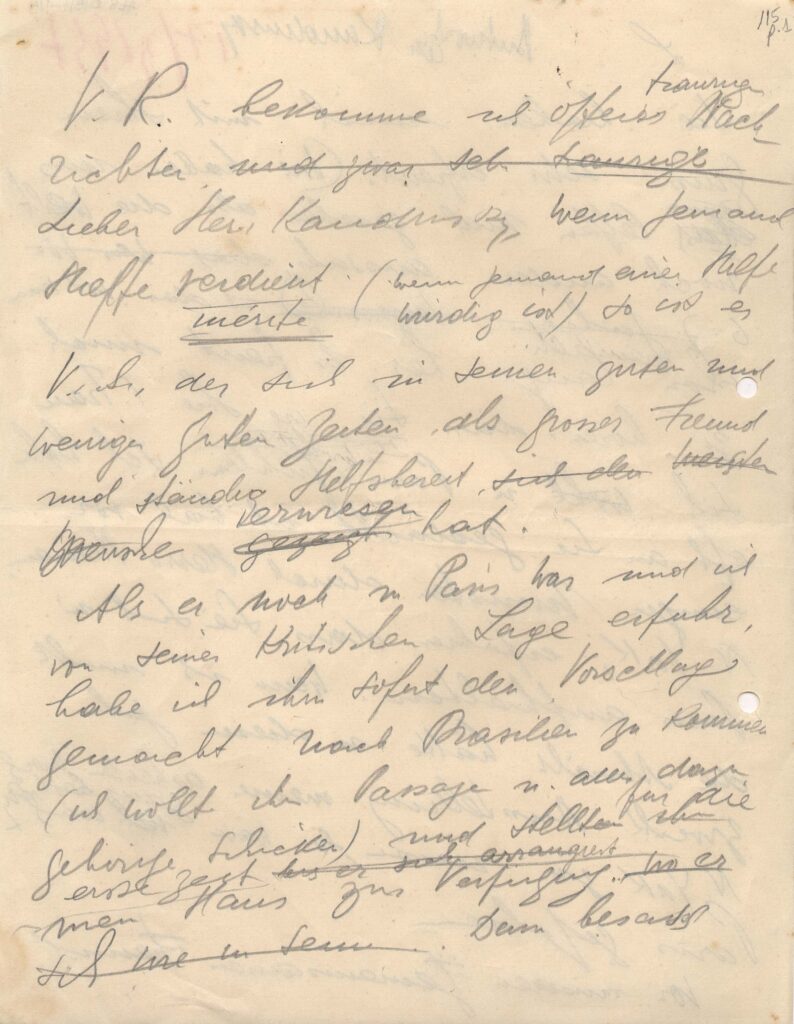 115
p.1
traurige
V. R. bekomme ich öfters Nach
richten und zwar sehr traurige
Lieber Herr Kandinsky, wenn jemand
Helfe verdient (wenn jemand einer Helfe
mérite würdig ist) so ist es
V. R., der sich in seinen guten und
weniger guten Zeiten als grosser Freund
und ständig Helfsbereit sich den meisten
verwiesen
Mensche gezeigt hat.
Als er noch in Paris war und ich
von seiner Kritischen Lage erfuhr,
habe ich ihm sofort den Vorschlag
gemacht nach Brasilien zu kommen
(ich wollt ihm Passage u. alles dazu
gehörige schicken) und stellten ihm für die
erste Zeit bis er sich arrangiert
mein Haus zur Verfügung. wo er
sich wie in seim Dann besass